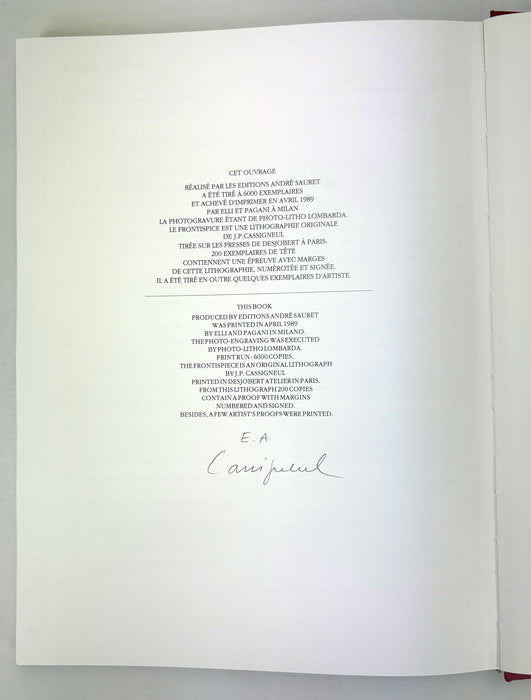 CET OUVRAGE
RÉALISÉ PAR LES EDITIONS ANDRÉ SAURET
A ÉTÉ TIRÉ À 6000 EXEMPLAIRES
ET ACHEVÉ D'IMPRIMER EN AVRIL 1989
PAR ELLI ET PAGANI À MILAN
LA PHOTOGRAVURE ÉTANT DE PHOTO-LITHO LOMBARDA.
LE FRONTISPICE EST UNE LITHOGRAPHIE ORIGINALE
DE J.P.CASSIGNEUL
TIRÉE SUR LES PRESSES DE DESJOBERT À PARIS.
200 EXEMPLAIRES DE TÊTE
CONTIENNENT UNE ÉPREUVE AVEC MARGES
DE CETTE LITHOGRAPHIE, NUMÉROTÉE ET SIGNÉE.
IL A ÉTÉ TIRÉ EN OUTRE QUELQUES EXEMPLAIRES D'ARTISTE.
THIS BOOK
PRODUCED BY EDITIONS ANDRÉ SAURET
WAS PRINTED IN APRIL 1989
BY ELLI AND PAGANI IN MILANO.
THE PHOTO-ENGRAVING WAS EXECUTED
BY PHOTO-LITHO LOMBARDA.
PRINT RUN : 6000 COPIES,
THE FRONTISPIECE IS AN ORIGINAL LITHOGRAPH
BY J.P. CASSIGNEUL
PRINTED IN DESJOBERT ATELIER IN PARIS.
FROM THIS LITHOGRAPH 200 COPIES
CONTAIN A PROOF WITH MARGINS
NUMBERED AND SIGNED.
BESIDES, A FEW ARTIST'S PROOFS WERE PRINTED.
E.A
Cassigneul